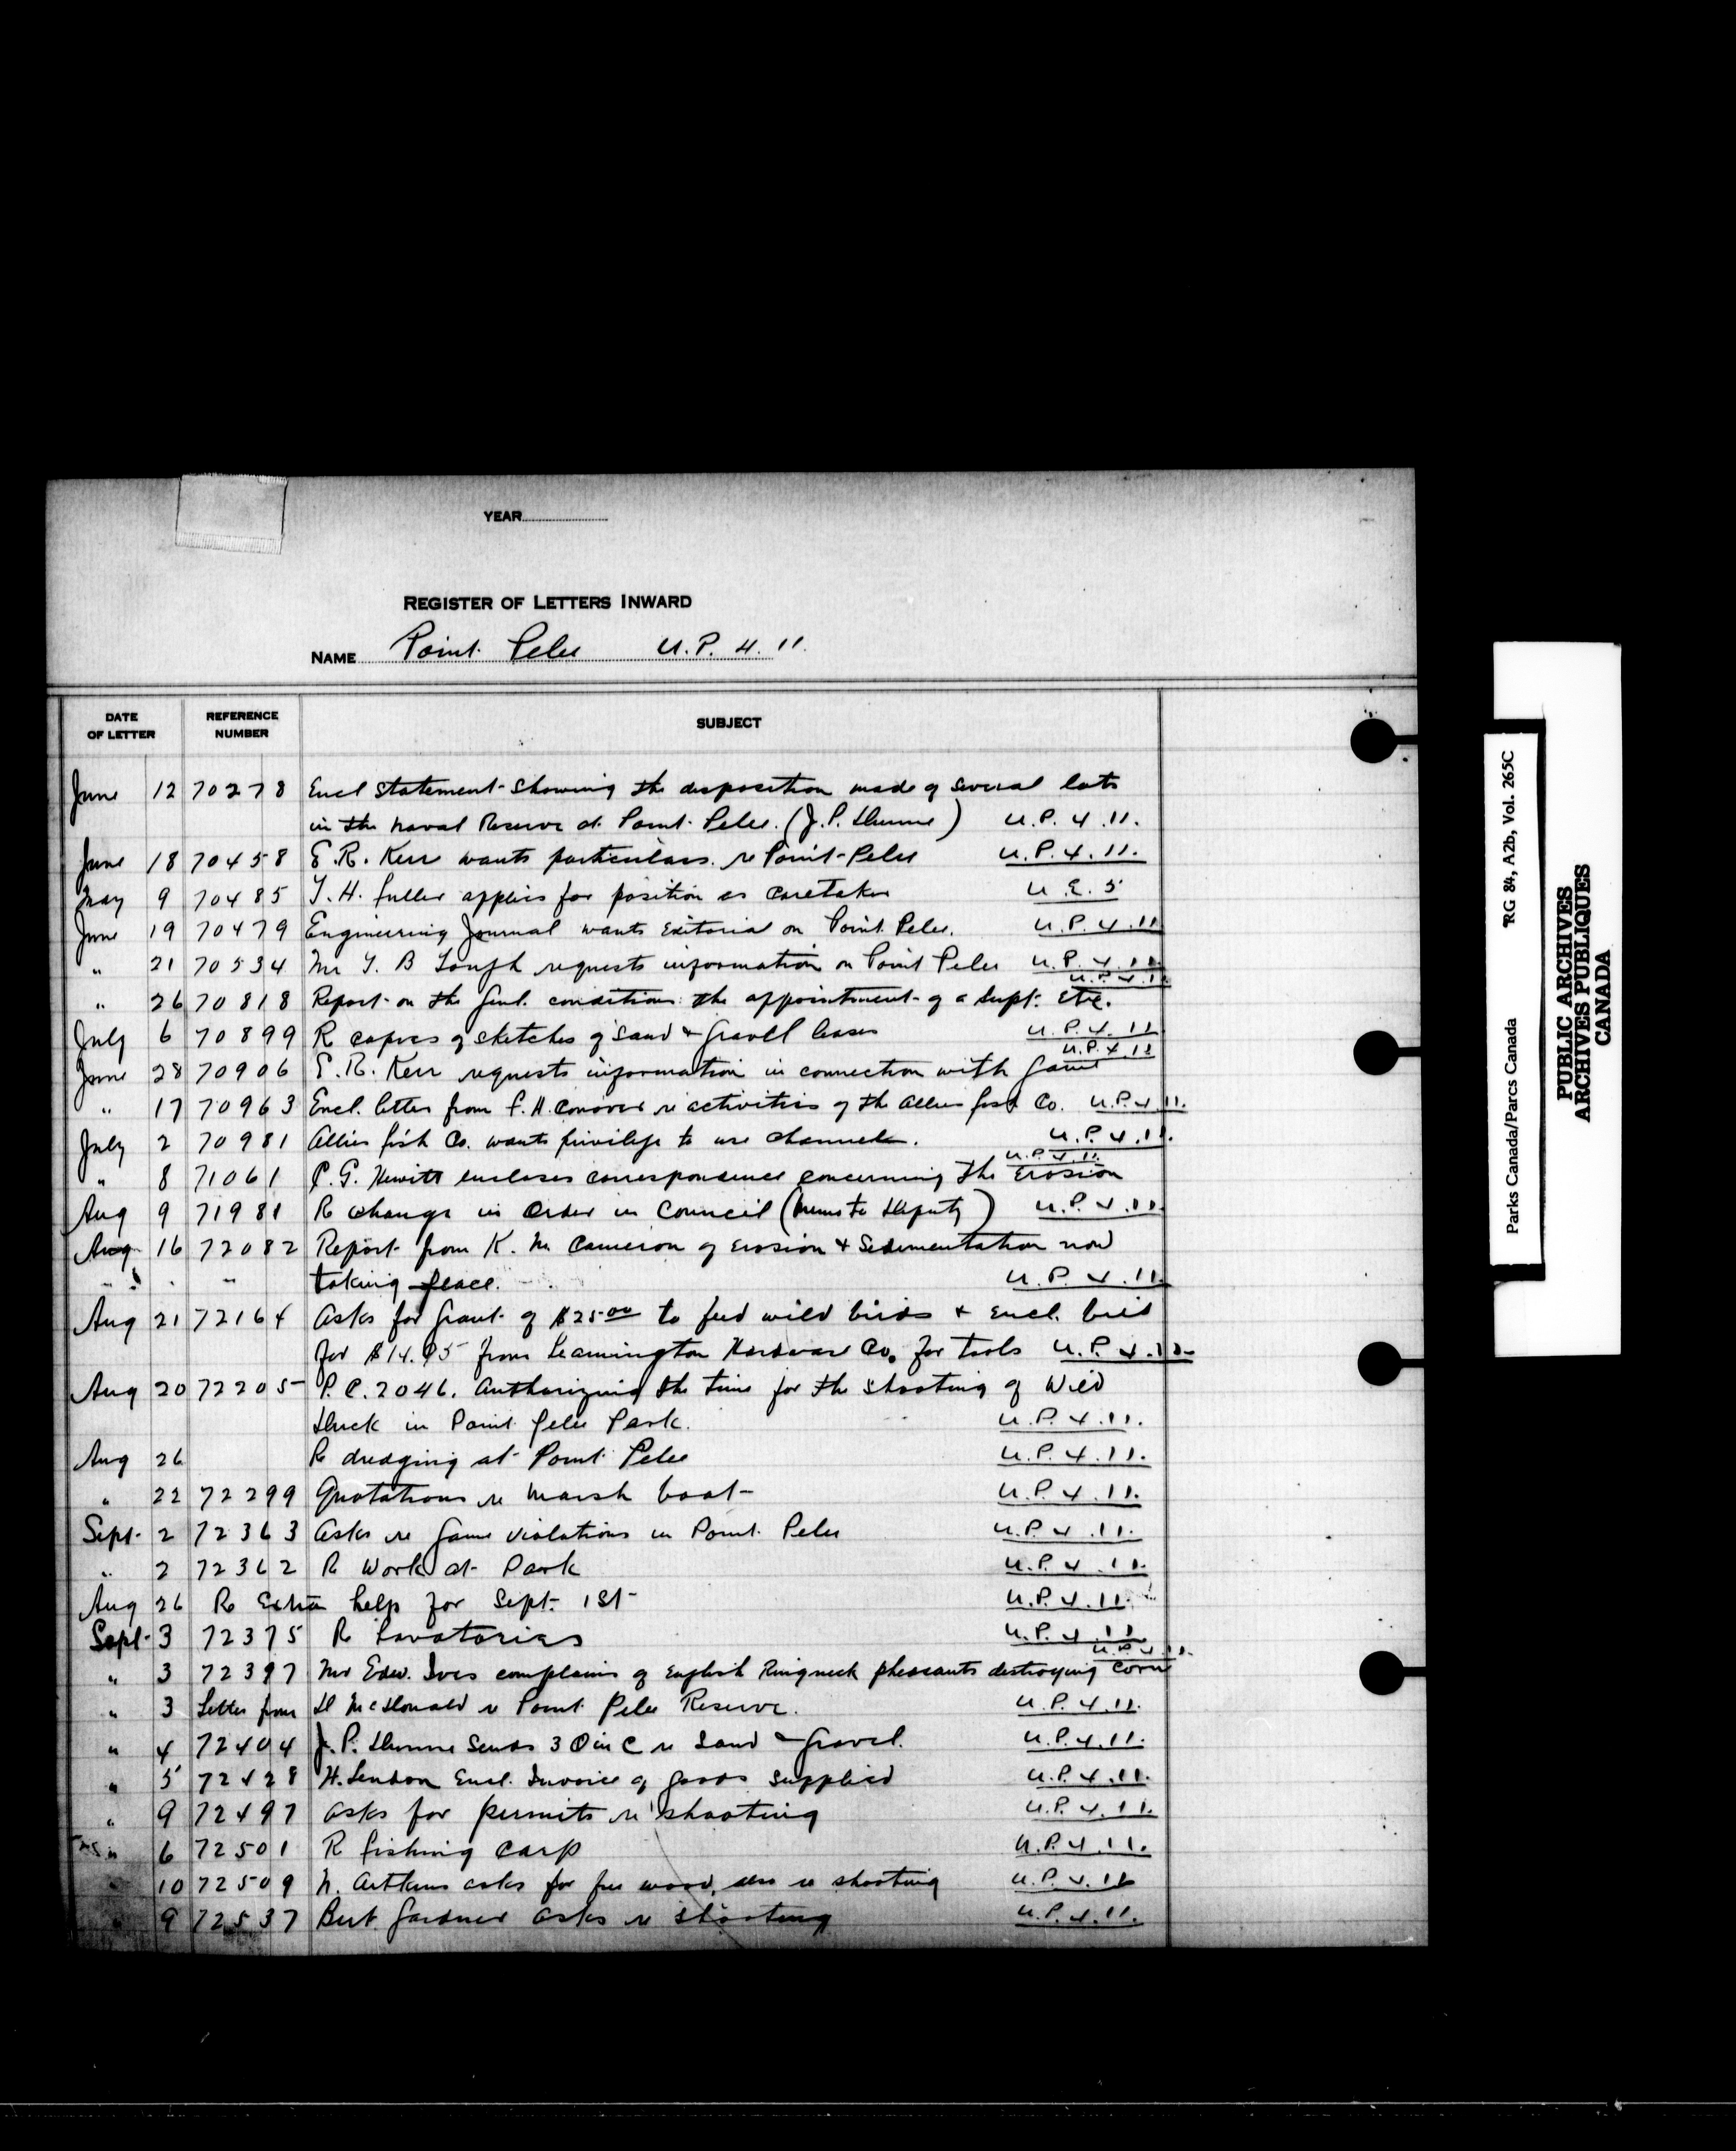 YEAR
REGISTER OF LETTERS INWARD
NAME Point Pelee U.P. 4.11.
DATE OF LETTER REFERENCE NUMBER SUBJECT
June 12 70278 Encl statement showing the disposition made of several lots
in the Naval Reserve at Point Pelee. (J.P. Dunne) U.P. 4.11.
June 18 70458 E.R. Kerr wants particulars re Point Pelee U.P.4.11.
May 9 70485 T.H. Fuller applies for position as Caretaker U.E. 5
June 19 70479 Engineering Journal wants Editorial on Point Pelee. U.P.4.11
" 21 70534 Mr T. B Tough requests information on Point Pelee U.P. 4.11
" 26 70818 Report on the Genl. conditions the appointment of a Supt. Etc. U.P.4.11
July 6 70899 R copies of sketches of Sand & Gravell leases U.P.4.11
June 28 70906 E.R. Kerr requests information in connection with Game U.P.4.11
" 17 70963 Encl. letter from F.H. Conover re activities of the Allies fish Co. U.P.4.11.
July 2 70981 Allies fish Co. wants privilege to use channels. U.P.4.11.
" 8 71061 C.G. Hewitt encloses correspondence concerning the Erosion U.P.4.11.
Aug 9 71981 R change in Order in Council (Memo to Deputy) U.P.4.11.
Aug 16 72082 Report from K. M Cameron of Erosion & Sedimentation now
taking place. U.P.4.11.
Aug 21 72164 Asks for Grant of $25.00 to feed wild birds & Encl. bill
for $14.95 from Leamington Hardware Co. for tools U.P.4.11.
Aug 20 72205 P.C. 2046. Authorizing the time for the shooting of Wild
Duck in Point Pelee Park. U.P.4.11.
Aug 26 R dredging at Point Pelee U.P.4.11.
" 22 72299 Quotations re Marsh boat U.P.4.11.
Sept. 2 72363 Asks re Game violations in Point Pelee U.P.4.11.
" 2 72362 R Work at Park U.P.4.11.
Aug 26 R Extra help for Sept. 1st U.P.4.11.
Sept. 3 72375 R Lavatories U.P.4.11.
" 3 72397 Mr Edw. Ives complains of English Ringneck pheasants destroying Corn U.P.4.11.
" 3 Letter from D McDonald re Point Pelee Reserve. U.P.4.11.
" 4 72404 J.P. Dunne Sends 3 O in C re Sand & Gravel. U.P.4.11.
" 5 72428 H. Lendon Encl. Invoice of goods supplied U.P.4.11.
" 9 72497 Asks for permits re shooting U.P.4.11.
" 6 72501 R fishing Carp U.P.4.11.
" 10 72509 N. asks for free wood, also re shooting U.P.4.11
" 9 72537 Bert Gardner asks re shooting U.P.4.11.
Parks Canada/Parcs Canada RG 84, A2b, Vol. 265C
PUBLIC ARCHIVES
ARCHIVES PUBLIQUES
CANADA